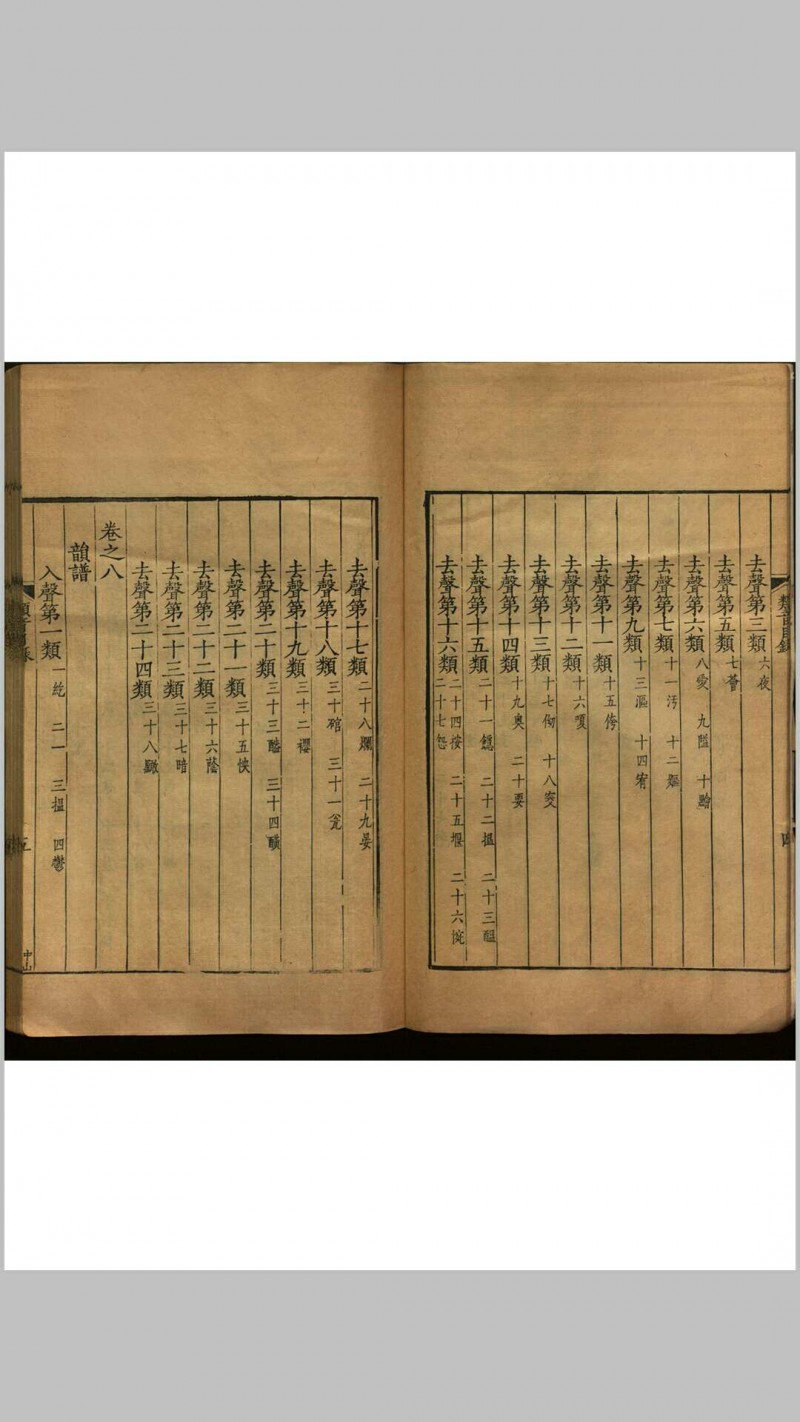 去聲第三類 六夜
去聲第五類 七薈
去聲第六類 八愛 九隘 十黵
去聲第七類 十一汚 十二嫗
去聲第九類 十三漚 十四宥
去聲第十一類 十五侉
去聲第十二類 十六嗄
去聲第十三類 十七
去聲第十四類 十九奥 二十要
去聲第十五類 二十一 二十二揾 二十三醞
去聲第十六類 二十四按 二十五堰 二十六 二十七怨
四
去聲第十七類 二十八 二十九晏
去聲第十八類 三十 三十一瓮
去聲第十九類 三十二
去聲第二十類 三十三醠 三十四
去聲第二十一類 三十五怏
去聲第二十二類 三十六蔭
去聲第二十三類 三十七暗
去聲第二十四類 三十八
卷之八
韻譜
入聲第一類 一 二一 三揾 四鬱
五